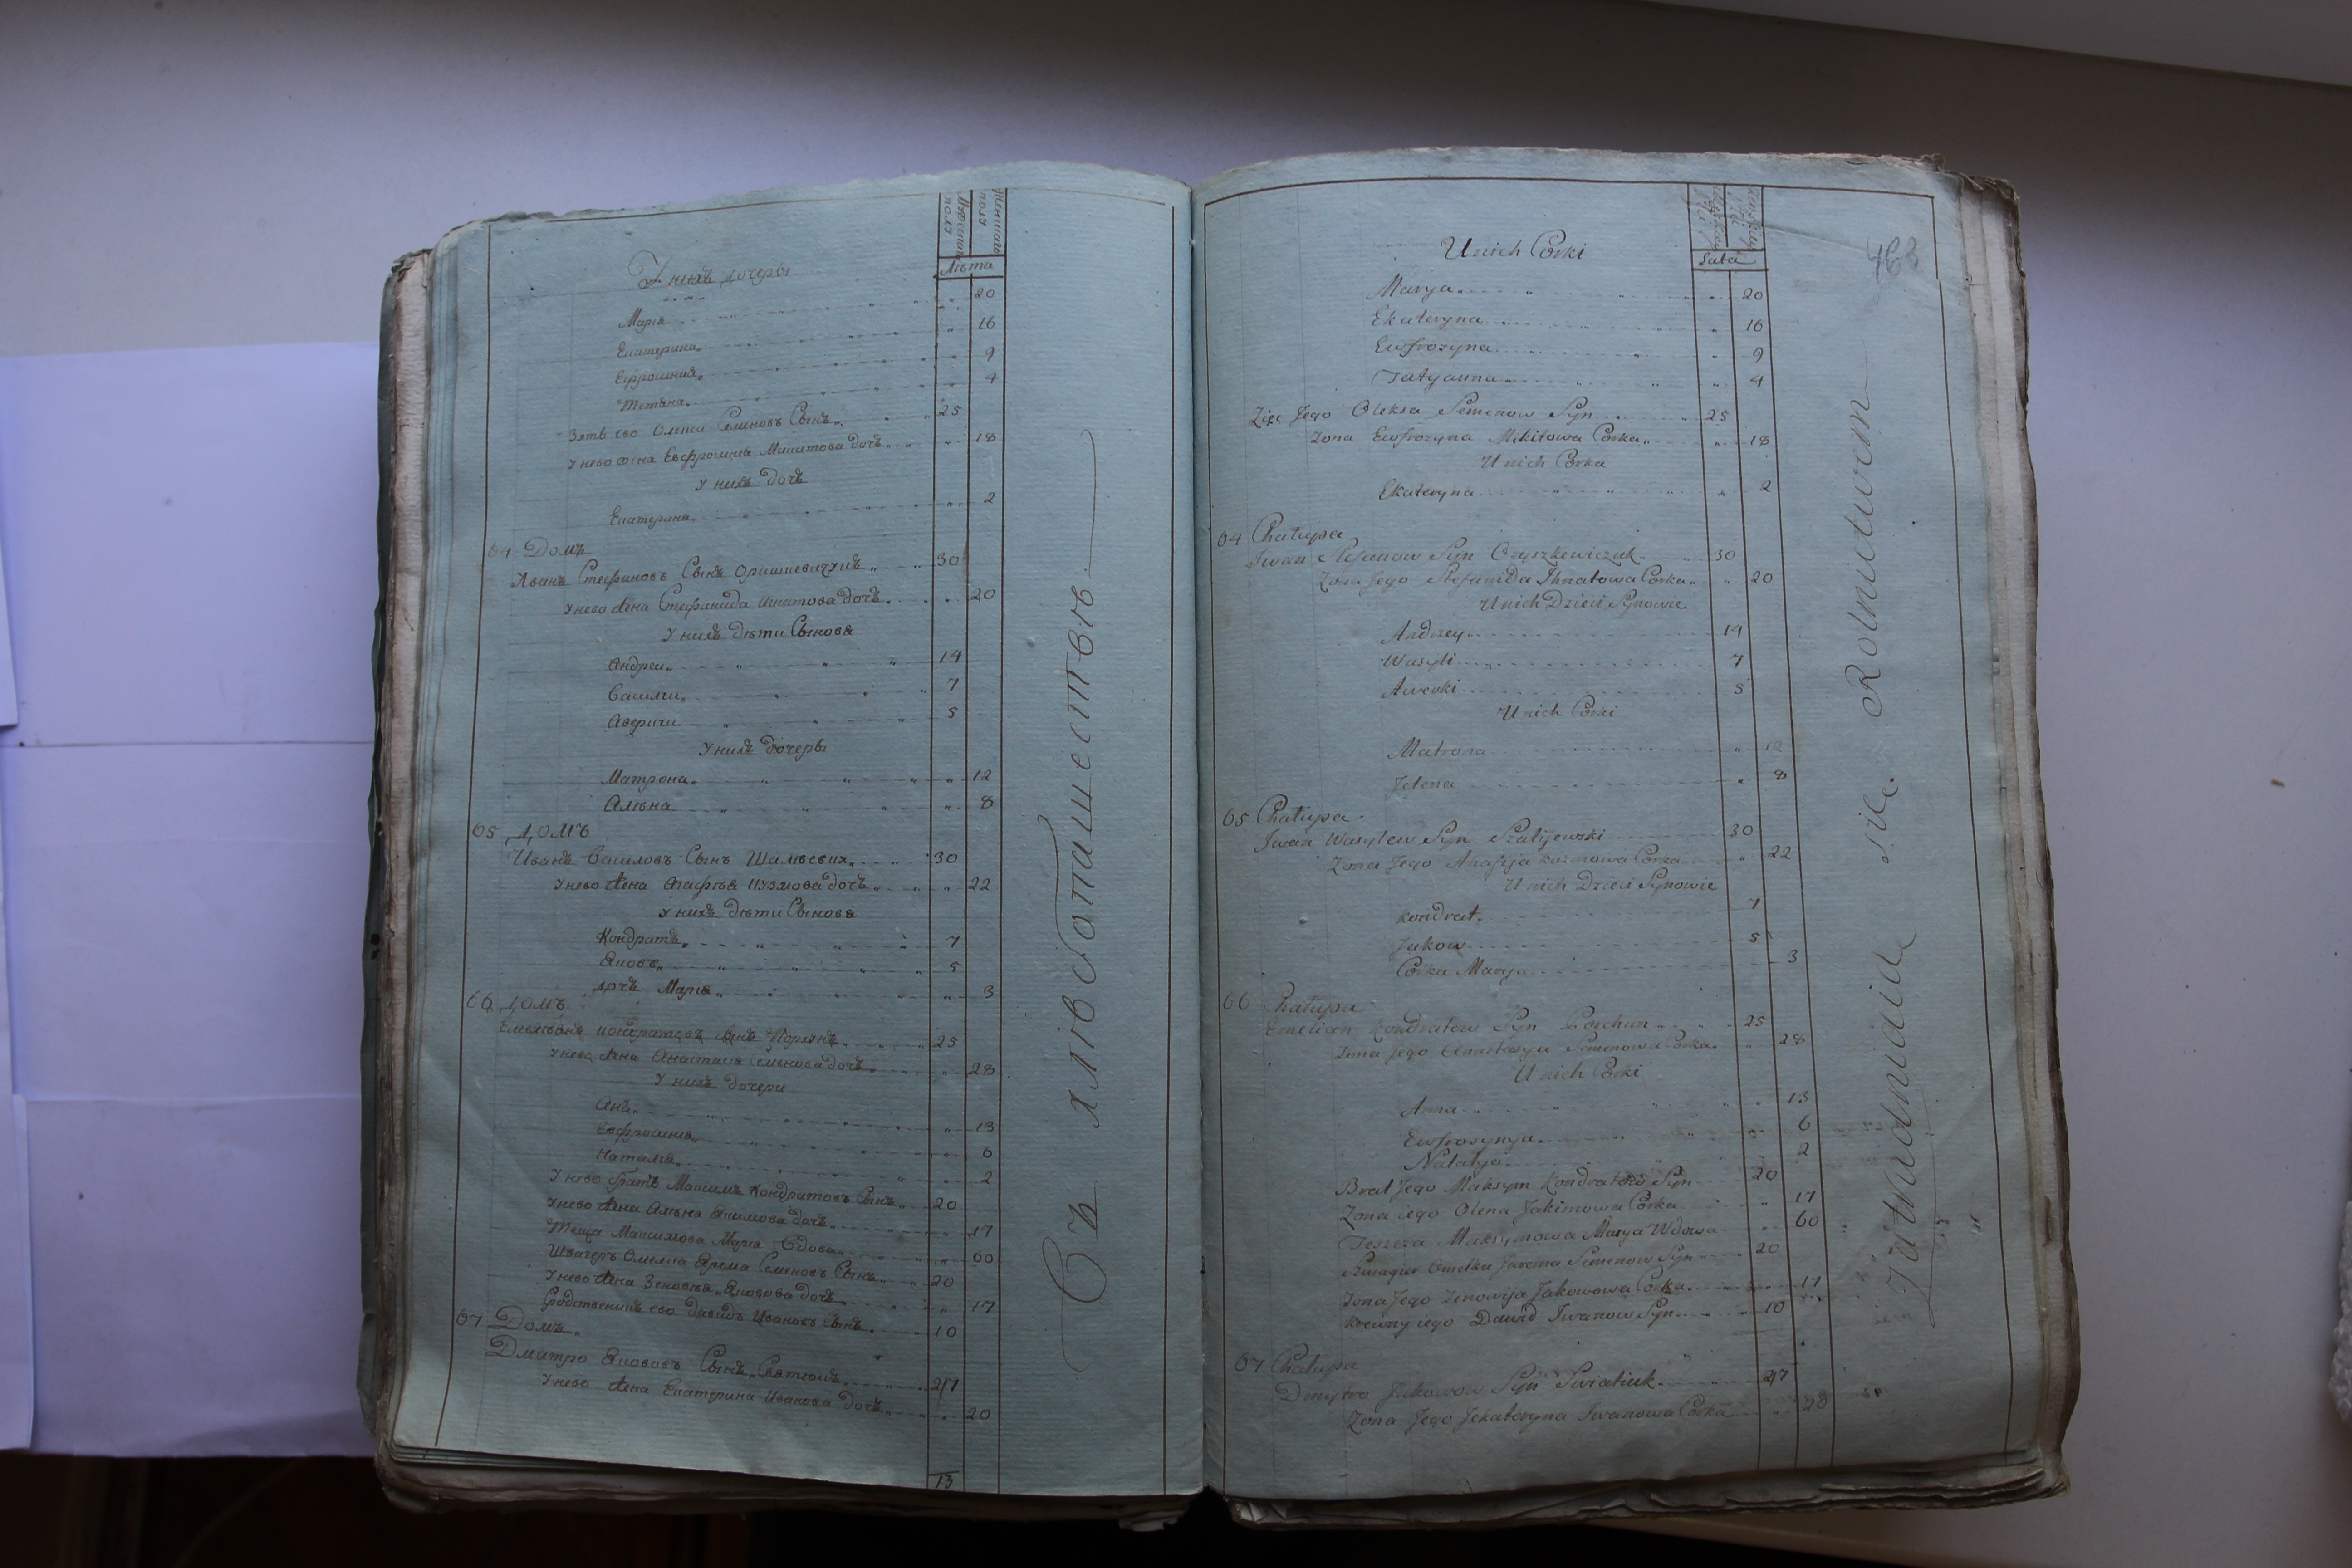 Мужеска полъ
Женскаго полъ
Лѣта
У нихъ дочеры
Марія 20
Екатерина 16
Ефросинія 9
Тетяна 4
Зять ево Олекса Семеновъ Сынъ 25
У нево жена Евфросинія Микитова дочъ 18
У нихъ дочъ
Екатерина 2
64 Домъ
Иванъ Стефановъ Сынъ 30
У нево жена Стефанида Игнатова дочъ 20
У нихъ дѣти Сыновя
Андреи 14
Василии 7
Аверкии 5
У нихъ дочеры
Матрона 12
Алѣна 8
65 Домъ
Иванъ Василовъ Сынъ 30
У нево жена Агафія Кузмова дочъ 22
У нихъ дѣти Сыновя
Кондратъ 7
Яковъ 5
дочъ Марія 3
66 Домъ
Емельянъ Кондратовъ Сынъ 25
У нево жена Анастасія Семенова дочъ 28
У нихъ дочери
Анна 13
Евфросинія 6
Наталія 2
У нево братъ Максимъ Кондратовъ Сынъ 20
У нево жена Алѣна Якимова дочъ 17
Теща Максимова Марія Вдова 60
Швагеръ Омелка Ярема Семеновъ Сынъ 20
У нево жена Зеновія Якозова дочъ 17
Родственникъ ево Давидъ Ивановъ Сынъ 10
67 Домъ
Дмитро Яковovъ Сынъ Святюкъ 27
У нево жена Екатерина Иванова дочъ 20
13
Съ хлѣбопашества
463
Lata
U nich Corki
Marya 20
Ekateryna 16
Ewfrozyna 9
Tatyanna 4
Zięc Jego Olexa Semenow Syn 25
Zona Ewfrozyna Mikitowa Corka 18
U nich Corka
Ekateryna 2
64 Chałupa
Iwan Stefanow Syn Oryszkewiczuk 30
Zona Jego Stefanida Ihnatowa Corka 20
U nich Dzieci Synowie
Andrzey 14
Wasyli 7
Awerki 5
U nich Corki
Matrona 12
Jelena 8
65 Chałupa
Iwan Wasylew Syn Szalijewski 30
Zona Jego Ahafija Kuzmowa Corka 22
U nich Dzieci Synowie
Kondrat 7
Jakow 5
Corka Marya 3
66 Chałupa
Emelian Kondratow Syn Porchun 25
Zona Jego Anastasya Semenowa Corka 28
U nich Corki
Anna 13
Ewfrosynya 6
Natalya 2
Brat Jego Maksym Kondratow Syn 20
Zona iego Olena Jakimowa Corka 17
Teszcza Maksymowa Marya Wdowa 60
Szwagier Omelka Jarema Semenow Syn 20
Zona Jego Zenowija Jakowowa Corka 17
Krewny iego Dawid Iwanow Syn 10
67 Chałupa
Dmytro Jakowow Syn Swiatiuk 27
Zona Jego Jekateryna Iwanowa Corka 20
Zatrudniaia sie Rolnictwem